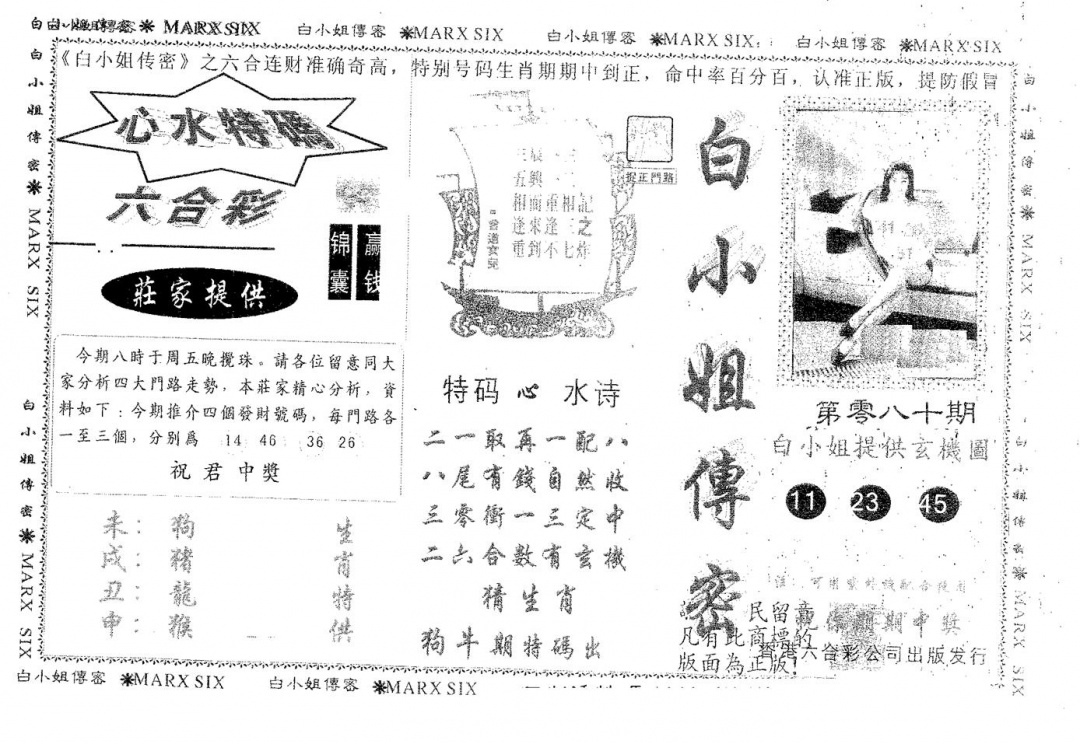 白小姐傳密 ※MARX SIX 白小姐傳密 ※MARX SIX 白小姐傳密 ※MARX SIX
《白小姐传密》之六合连财准确奇高，特别号码生肖期期中到正，命中率百分百，认准正版，提防假冒
白小姐傳密※MARX SIX
白小姐傳密※MARX SIX
心水特碼
六合彩
锦囊
赢钱
莊家提供
今期八時于周五晚攪珠。請各位留意同大
家分析四大門路走勢，本莊家精心分析，資
料如下：今期推介四個發財號碼，每門路各
一至三個，分别爲 14 46 36 26
祝君中獎
未：狗
戌：豬
丑：龍
申：猴
生肖特供
捉正門路
相面重相記
逢來逢三之
重到不七炸
曾道女兒
特码心水诗
二一取再一配八
八尾有錢自然收
三零衝一三定中
二六合數有玄機
猜生肖
狗牛期特碼出
白小姐傳密
民留意
凡有此商標的
版面為正版!
第零八十期
白小姐提供玄機圖
11 23 45
期中奬
香港六合彩公司出版发行
白小姐傳密 ※MARX SIX
白小姐傳密 ※MARX SIX 白小姐傳密 ※MARX SIX